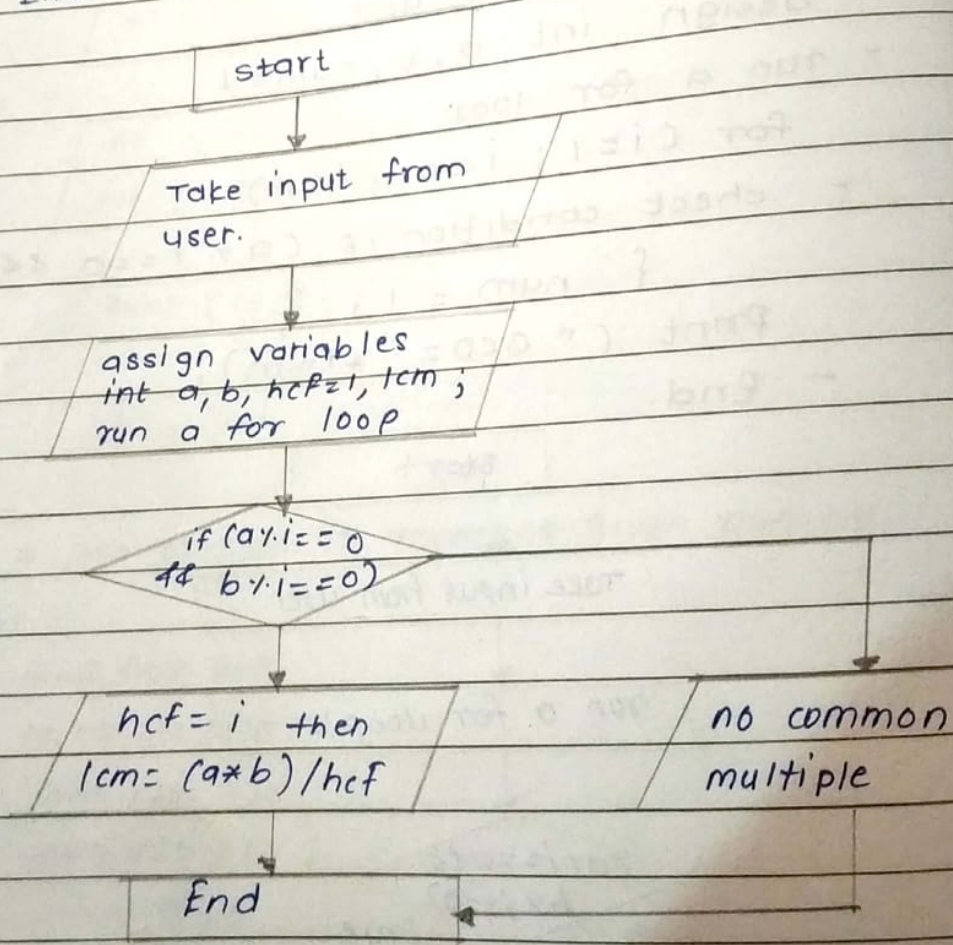 start
Take input from
user.
assign variables
int a, b, hcf=1, lcm ;
run a for loop
if (a%i==0
&& b%i==0)
hcf = i then
lcm= (a*b)/hcf
no common
multiple
End